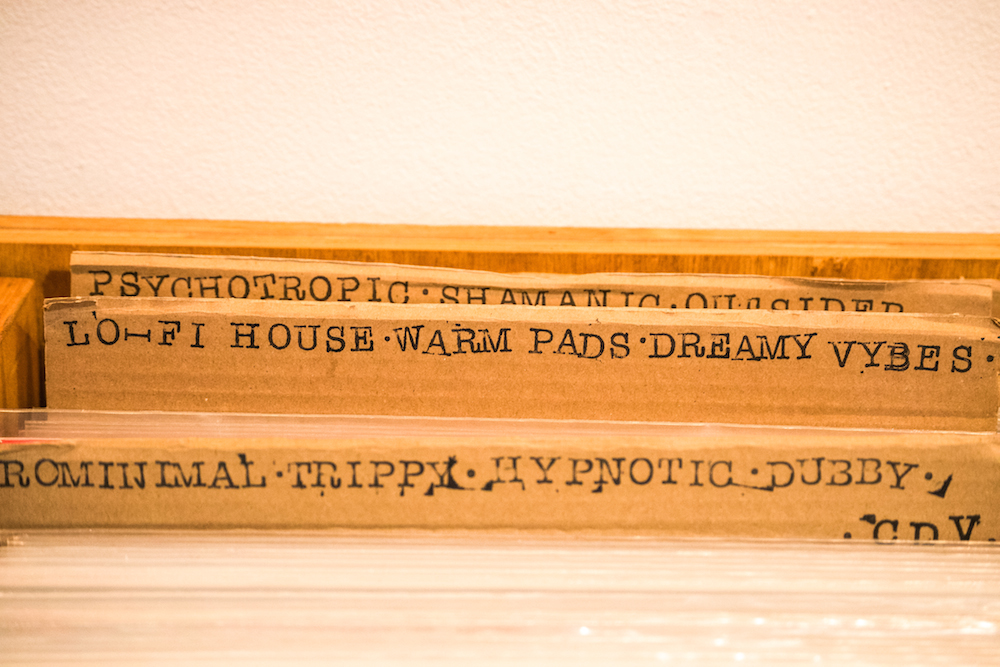 PSYCHOTROPIC · SHAMANIC · OUTSIDER
LO-FI HOUSE · WARM PADS · DREAMY VYBES ·
ROMINIMAL · TRIPPY · HYPNOTIC · DUBBY ·